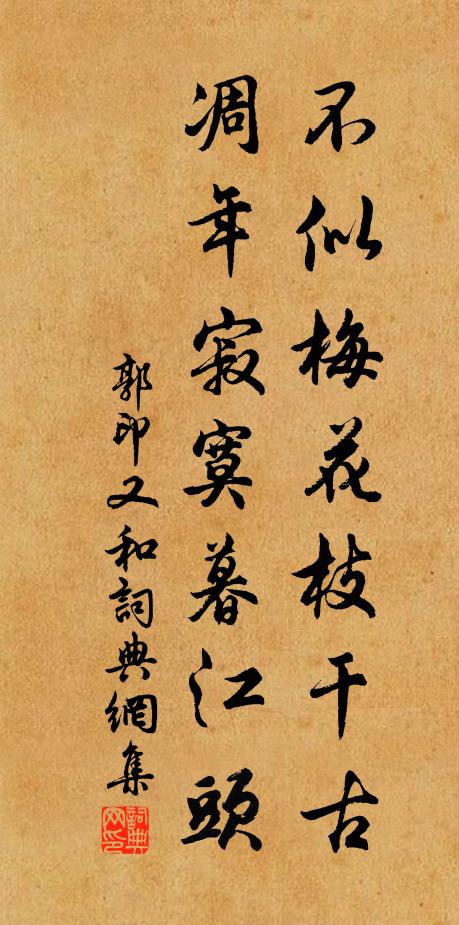 不似梅花枝干古
凋年寂寞暮江頭
郭印又和詞典網集
詞典网印